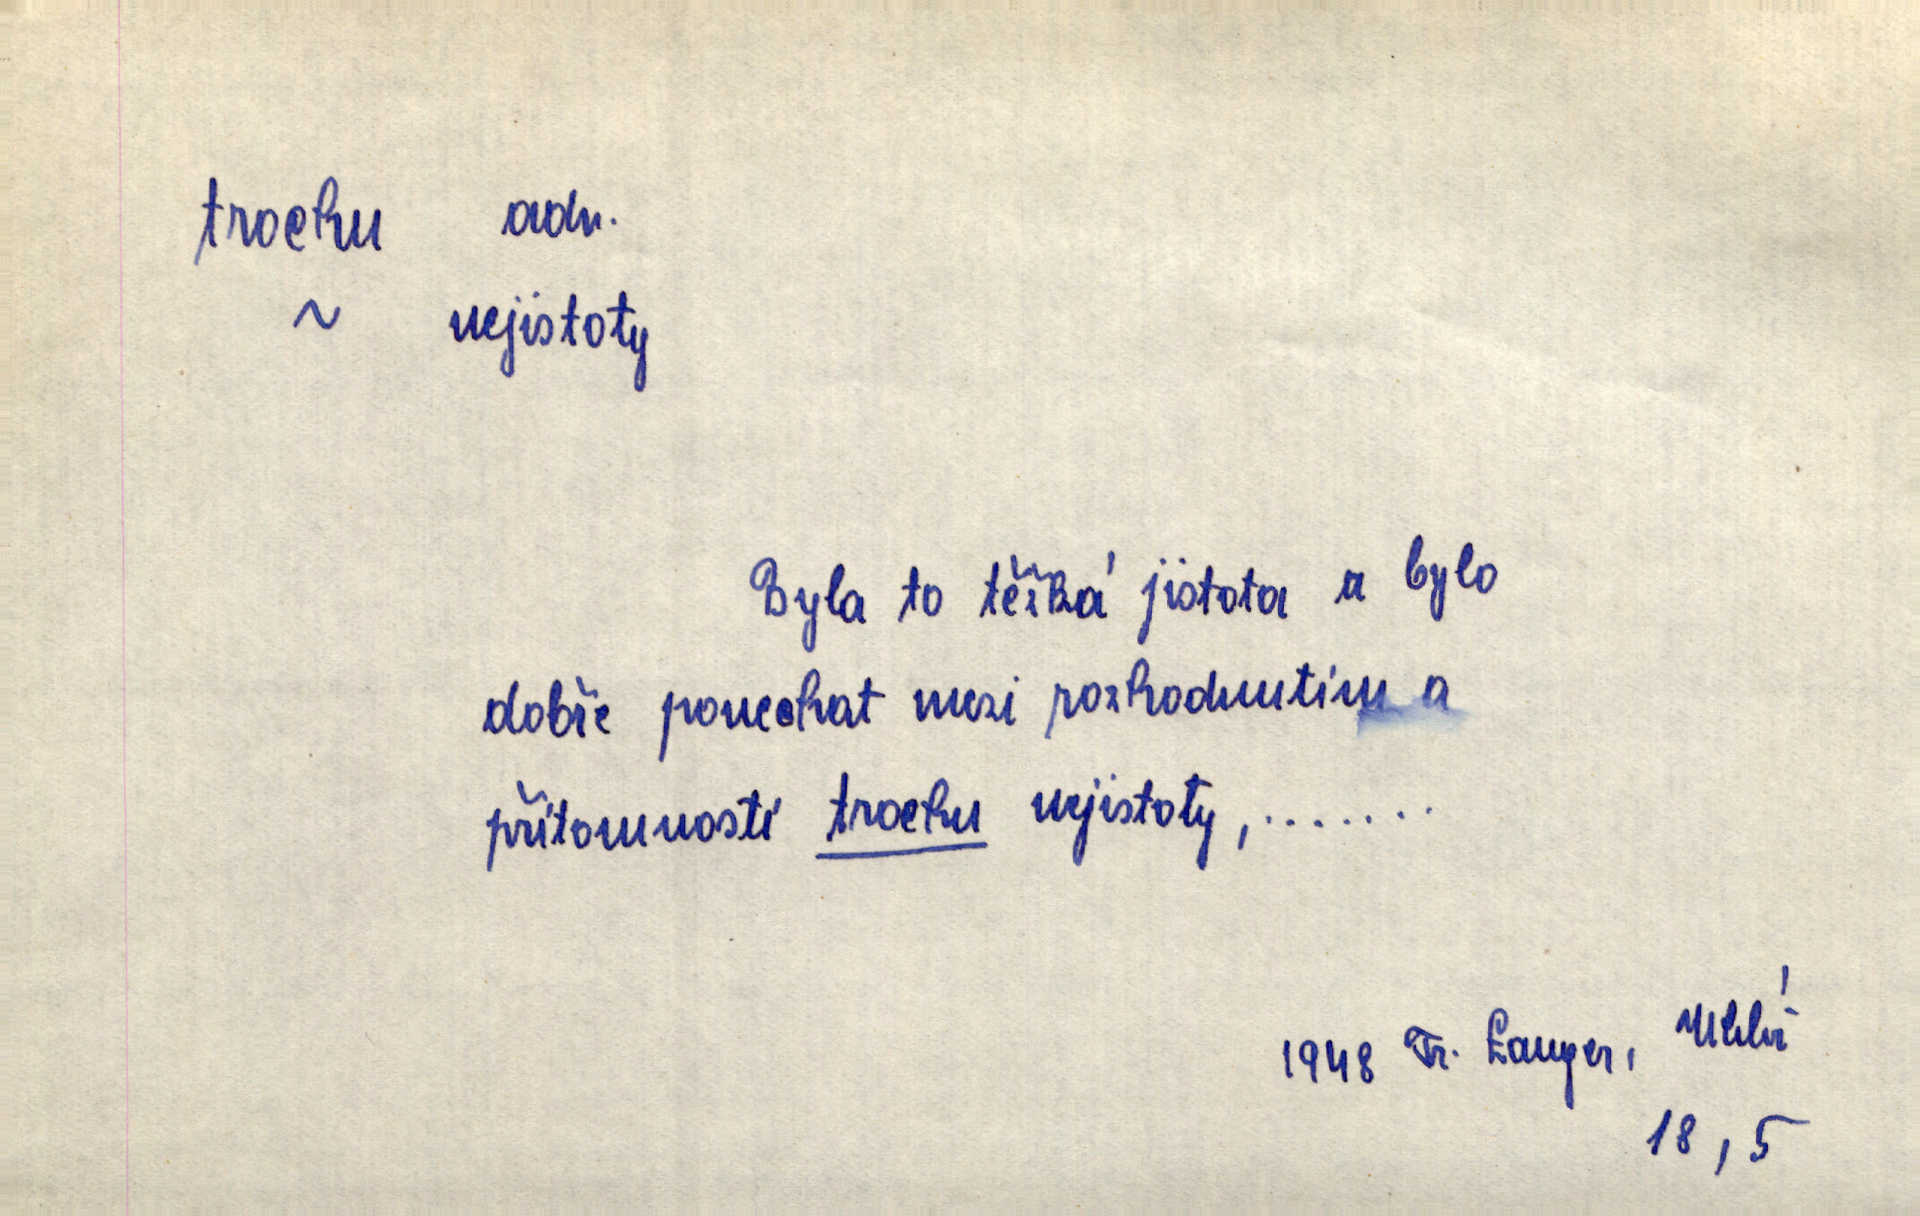 trochu adv.
~ nejistoty
Byla to těžká jistota a bylo
dobře ponechat mezi rozhodnutím a
přítomností trochu nejistoty, .......
1948 Fr. Langer,
18, 5